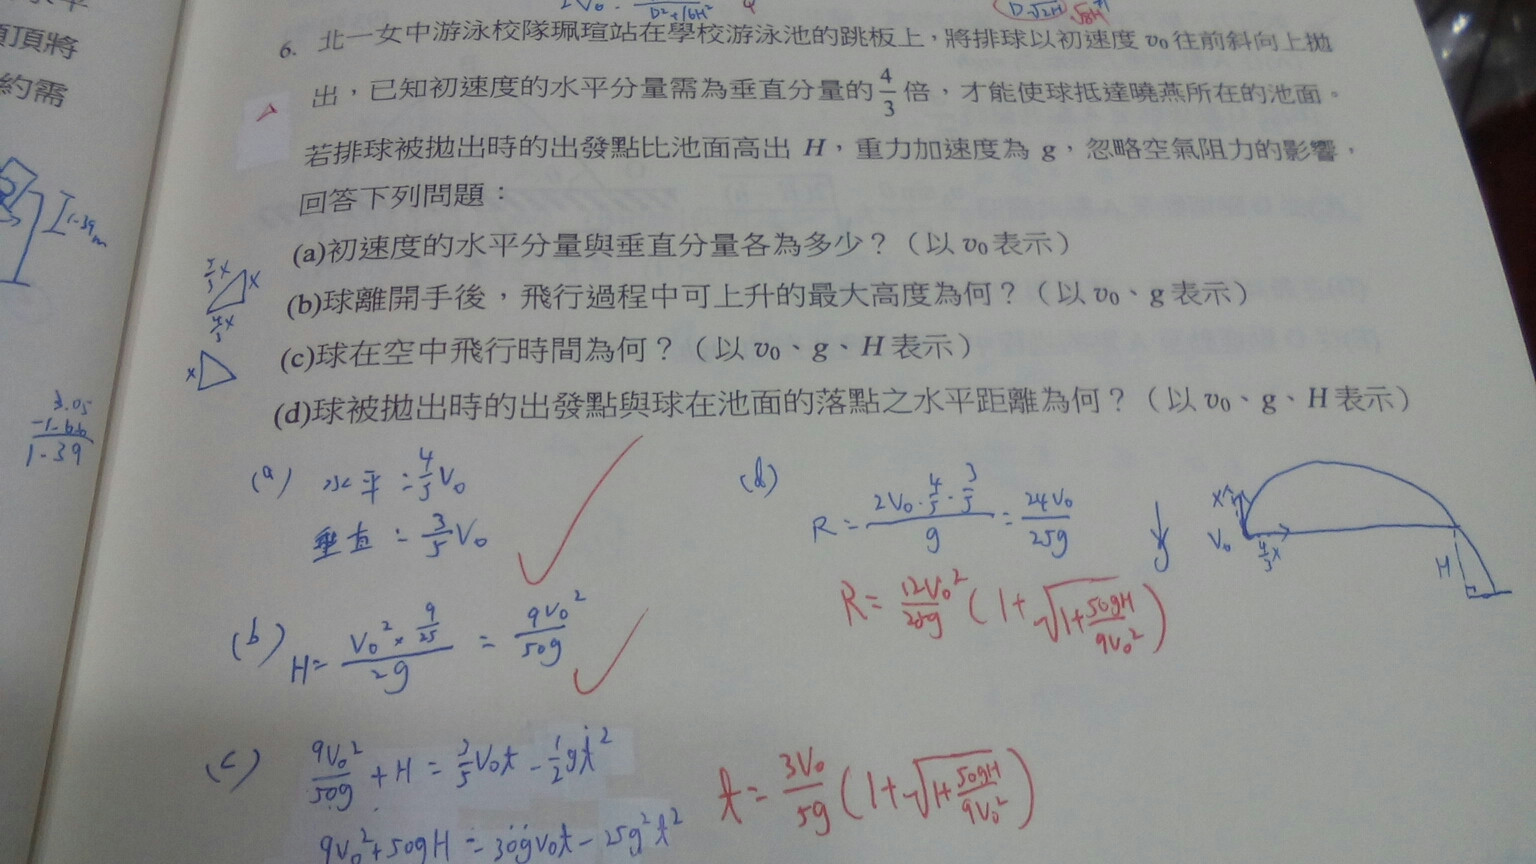 頂頂將
約需
6. 北一女中游泳校隊珮瑄站在學校游泳池的跳板上，將排球以初速度 v₀ 往前斜向上拋
出，已知初速度的水平分量需為垂直分量的 4/3 倍，才能使球抵達曉燕所在的池面。
若排球被拋出時的出發點比池面高出 H，重力加速度為 g，忽略空氣阻力的影響，
回答下列問題：
(a)初速度的水平分量與垂直分量各為多少？（以 v₀ 表示）
(b)球離開手後，飛行過程中可上升的最大高度為何？（以 v₀、g 表示）
(c)球在空中飛行時間為何？（以 v₀、g、H 表示）
(d)球被拋出時的出發點與球在池面的落點之水平距離為何？（以 v₀、g、H 表示）
1.39m
5/3 x
x
4/3 x
x
3.05
-1.66
1.39
(a) 水平 = 4/5 V₀
垂直 = 3/5 V₀
(b) H = (V₀² × 9/25)/2g = 9V₀²/50g
(c) 9V₀²/50g + H = 3/5 V₀t - 1/2 gt²
9V₀² + 50gH = 30gV₀t - 25g²t²
t = 3V₀/5g (1 + √(1 + 50gH/9V₀²))
(d) R = (2V₀ · 4/5 · 3/5)/g = 24V₀/25g
R = 12V₀²/25g (1 + √(1 + 50gH/9V₀²))
x
V₀
4/3 x
H
g